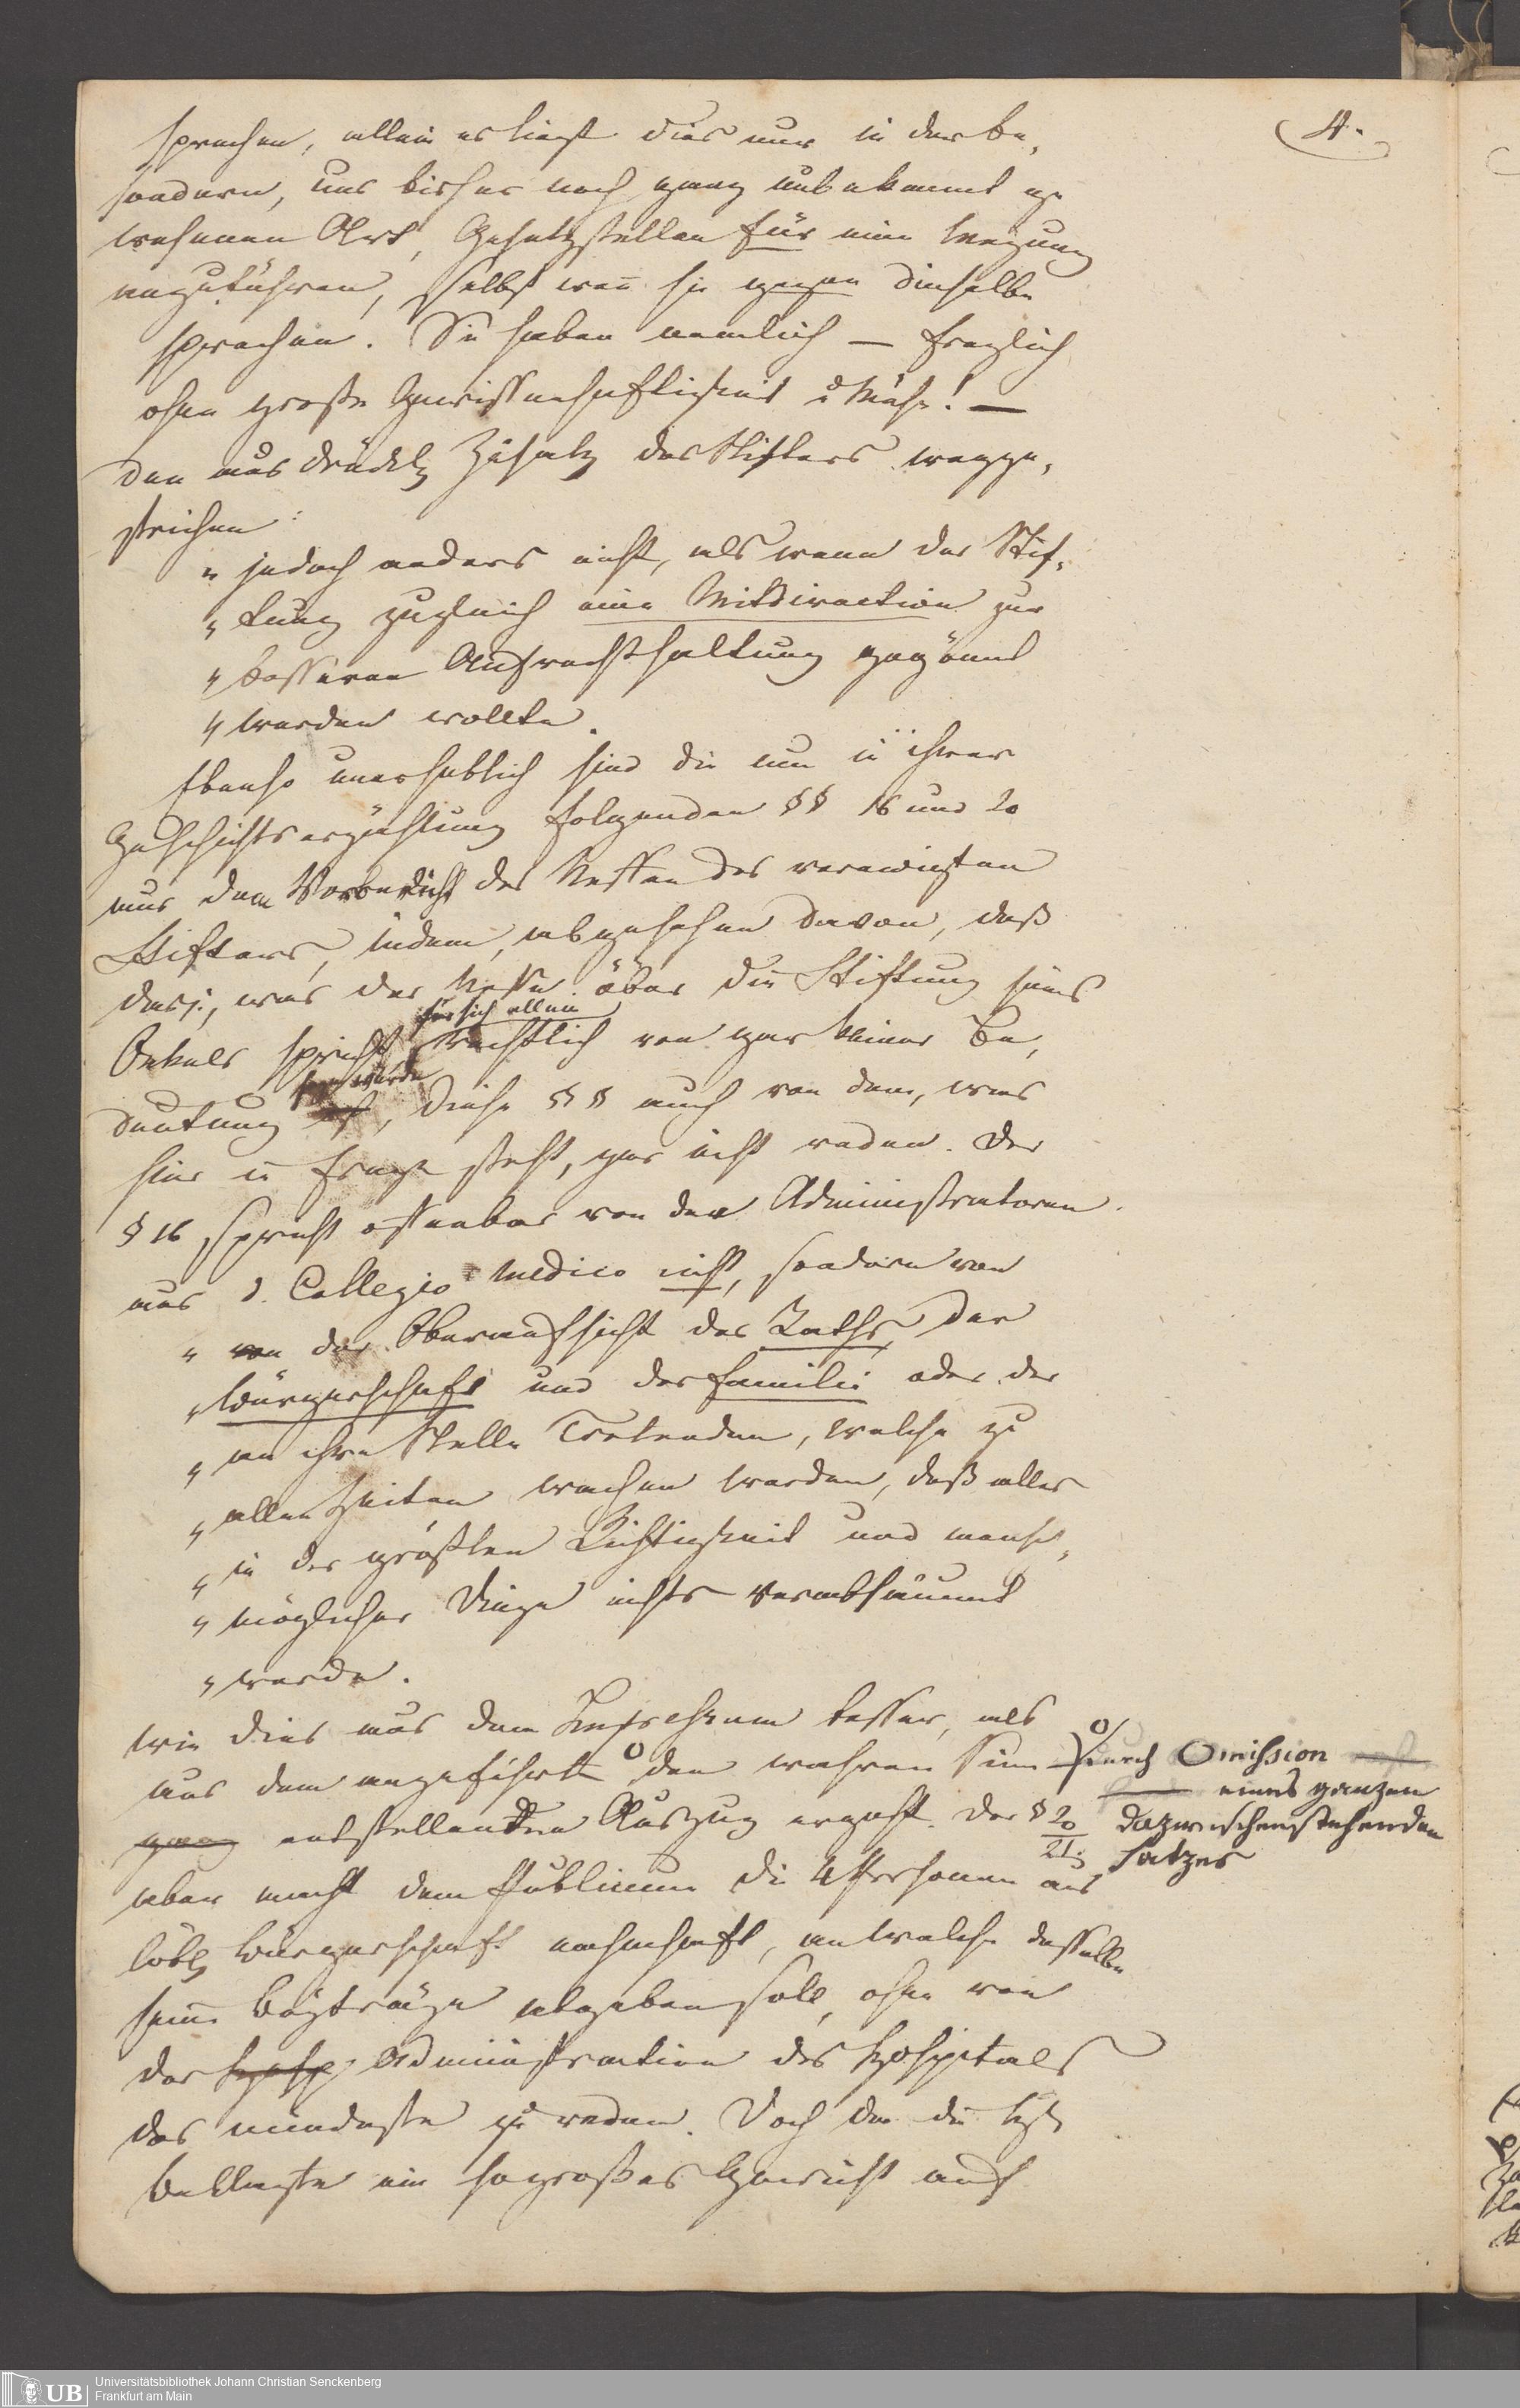 4.
sprechen, allein es liegt dies nur in der be,
sondern, uns bisher noch ganz unbekannt ge
wesenen Art, Gesetzstellen für eine Meynung
anzuführen, selbst wenn sie gegen dieselbe
sprechen. Sie haben nemlich — freylich
ohne große Gewissenhaftigkeit u Mühe! —
den ausdrückl Zusatz des Stifters wegge,
strichen:
„ jedoch anders nicht, als wenn der Stif,
„ tung zugleich eine Mitdirection zur
„ besseren Aufrechthaltung gegönnt
„ werden wollte.
Ebenso unerheblich sind die nun in ihrer
Geschichtserzählung folgenden §§ 16 und 20
aus dem Vorbericht des Neffen des verewigten
Stifters, indem, abgesehen davon, daß
dasj., was der Neffe über die Stiftung seines
für sich allein
Onkels spricht, rechtlich von gar keiner Be,
seyn würde
deutung ist, diese §§ auch von dem, was
hier in Frage steht, gar nicht reden. Der
§ 16 spricht offenbar von den Administratoren
aus d. Collegio medico nicht, sondern von
„ von der Oberaufsicht des Raths, der
„ Bürgerschaft und der Familie oder der
„ an ihre Stelle Tretenden, welche zu
„ allen Zeiten wachen werden, daß alles
„ in der größten Richtigkeit und mensch,
„ möglicher Dinge nichts verabsäumt
„ werde.
wie dies aus dem besser, als
aus dem angeführten den wahren Sinn
durch Omission
eines ganzen
dazwischenstehenden
Satzes
ganz entstellenden Auszug ergeht. Der § 20
21.
aber macht dem Publicum die 4 Personen aus
löbl Bürgerschaft nahmhaft, an welche dasselbe
seine Beyträge abgeben soll, ohne von
der Hosp Administration des Hospitals
das mindeste zu reden. Doch da die
Beklagte ein so großes Gewicht auf
Universitätsbibliothek Johann Christian Senckenberg
Frankfurt am Main
UB